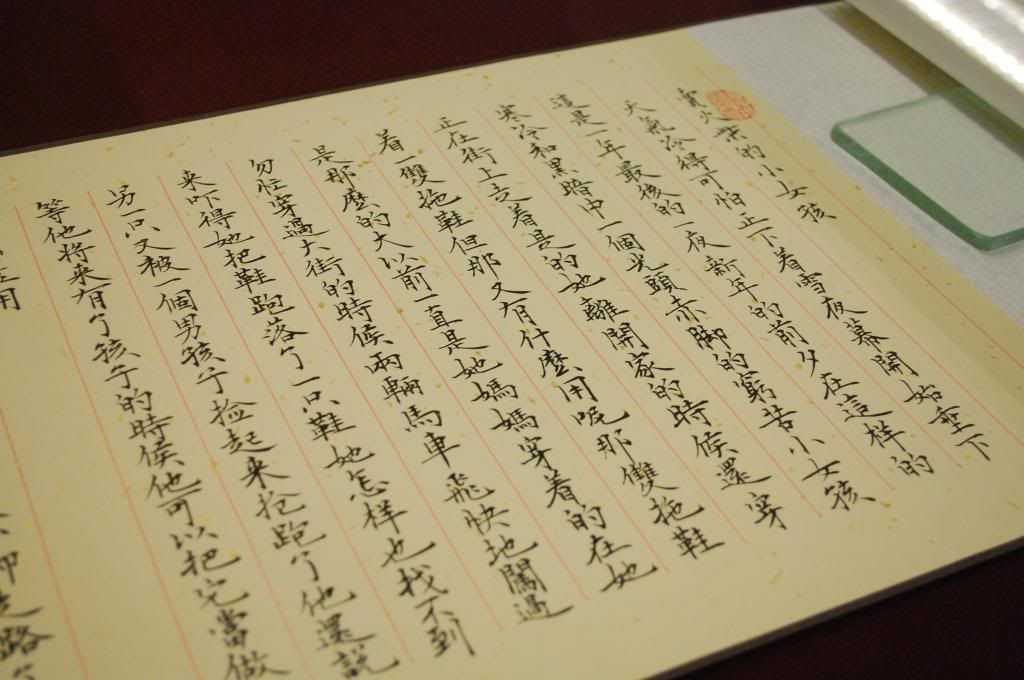 賣火柴的小女孩
天氣冷得可怕正下着雪夜幕開始垂下
這是一年最後的一夜新年的前夕在這样的
寒冷和黑暗中一個光頭赤脚的窮苦小女孩
正在街上走着是的她離開家的時侯還穿
着一雙拖鞋但那又有什麼用呢那雙拖鞋
是那麼的大以前一直是她媽媽穿着的在她
匆忙穿過大街的時侯兩輛馬車飛快地闖過
来吓得她把鞋跑落了一只鞋她怎样也找不到
另一只又被一個男孩子捡起来抢跑了他還説
等他将来有了孩子的時侯他可以把它當做
用
走路了